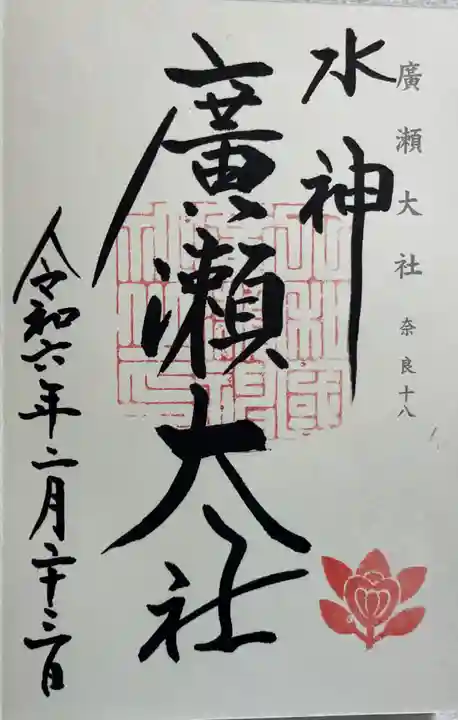 廣瀬大社 奈良十八
水神
廣瀬大社
令和六年二月二十三日